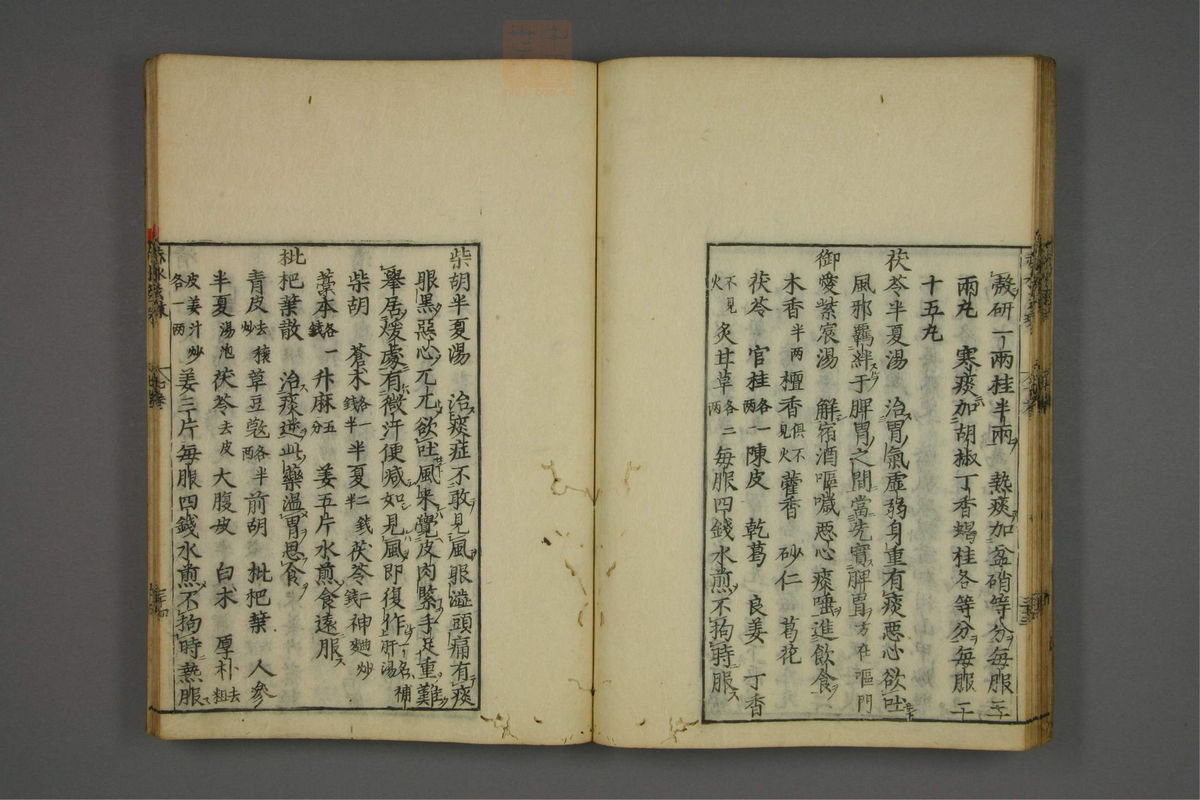 殼研一兩桂半兩　熱痰加盆硝等分每服二十
兩丸　寒痰加胡椒丁香蝎桂各等分每服二
十五丸
茯苓半夏湯　治胃氣虛弱身重有痰惡心欲吐
風邪羈絆于脾胃之間當先實脾胃方在嘔門
御愛紫宸湯　解宿酒嘔噦惡心痰唾進飲食
木香半兩檀香俱不見火藿香　砂仁　葛花
茯苓　官桂各一兩陳皮　乾葛　良姜　丁香
不見火炙甘草各二兩每服四錢水煎不拘時服
柴胡半夏湯　治痰症不敢見風眼澁頭痛有痰
眼黑惡心兀兀欲吐風來覺皮肉緊手足重難
舉居煖處有微汗便减如見風即復作一名補肝湯
柴胡　蒼朮各一錢半半夏二錢半茯苓二錢神麯炒
藁本各一錢升麻五分　姜五片水煎食遠服
枇杷葉散　治痰逆此藥溫胃思食
青皮去穰炒草豆蔲各半兩前胡　枇杷葉　人參
半夏湯泡茯苓去皮大腹皮　白朮　厚朴去粗
皮姜汁炒各一兩姜三片每服四錢水煎不拘時熱服